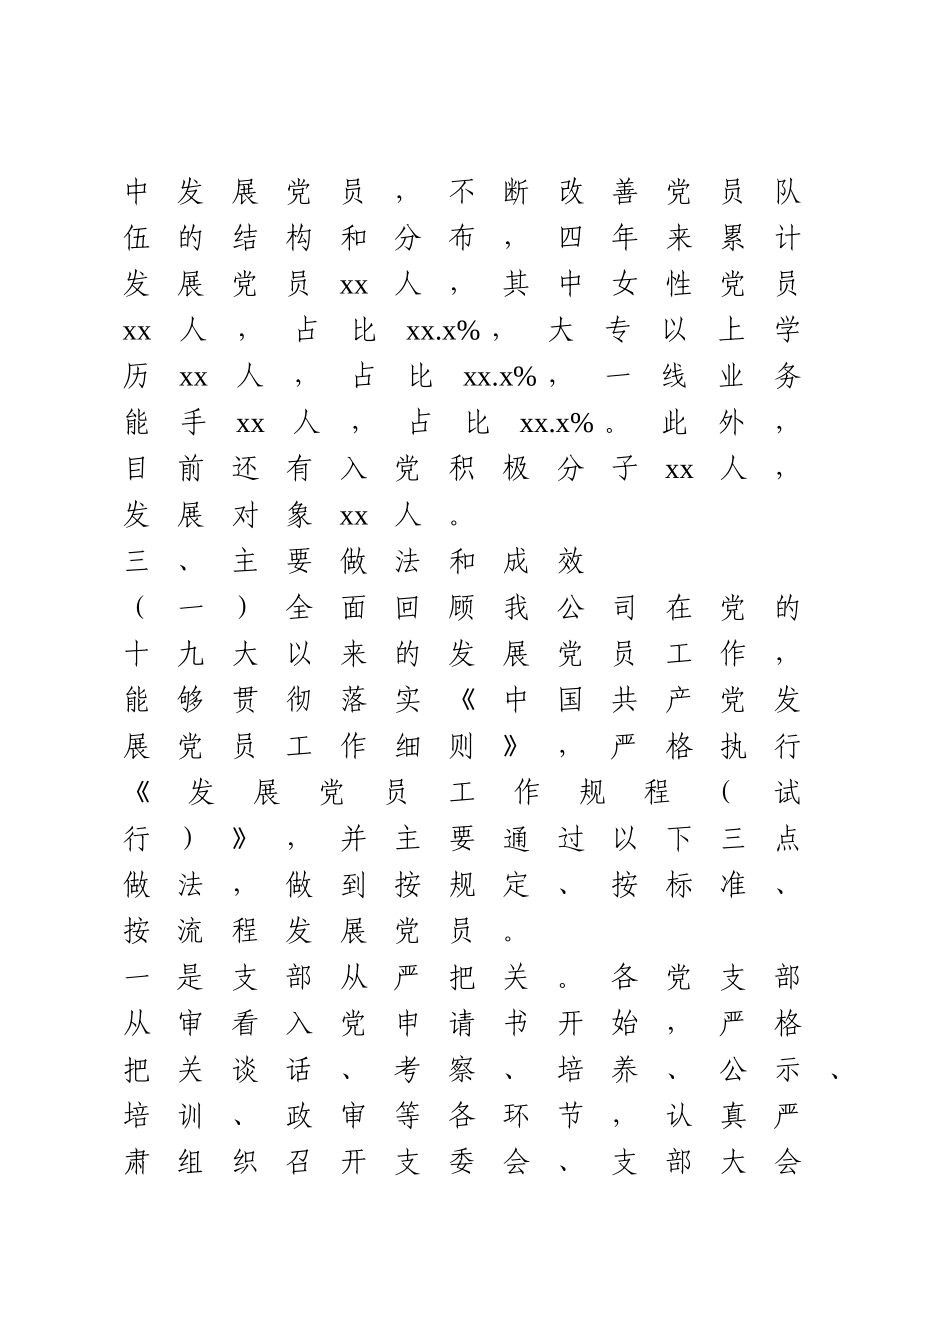 中发展党员，不断改善党员队
伍的结构和分布，四年来累计
发展党员xx人，其中女性党员
xx人，占比xx.x%，大专以上学
历xx人，占比xx.x%，一线业务
能手xx人，占比xx.x%。此外，
目前还有入党积极分子xx人，
发展对象xx人。
三、主要做法和成效
（一）全面回顾我公司在党的
十九大以来的发展党员工作，
能够贯彻落实《中国共产党发
展党员工作细则》，严格执行
《发展党员工作规程（试
行）》，并主要通过以下三点
做法，做到按规定、按标准、
按流程发展党员。
一是支部从严把关。各党支部
从审看入党申请书开始，严格
把关谈话、考察、培养、公示、
培训、政审等各环节，认真严
肃组织召开支委会、支部大会